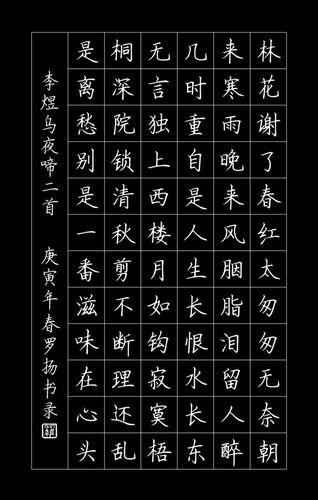 林花谢了春红太匆匆无奈朝
来寒雨晚来风胭脂泪留人醉
几时重自是人生长恨水长东
无言独上西楼月如钩寂寞梧
桐深院锁清秋剪不断理还乱
是离愁别是一番滋味在心头
李煜乌夜啼二首 庚寅年春罗扬书录